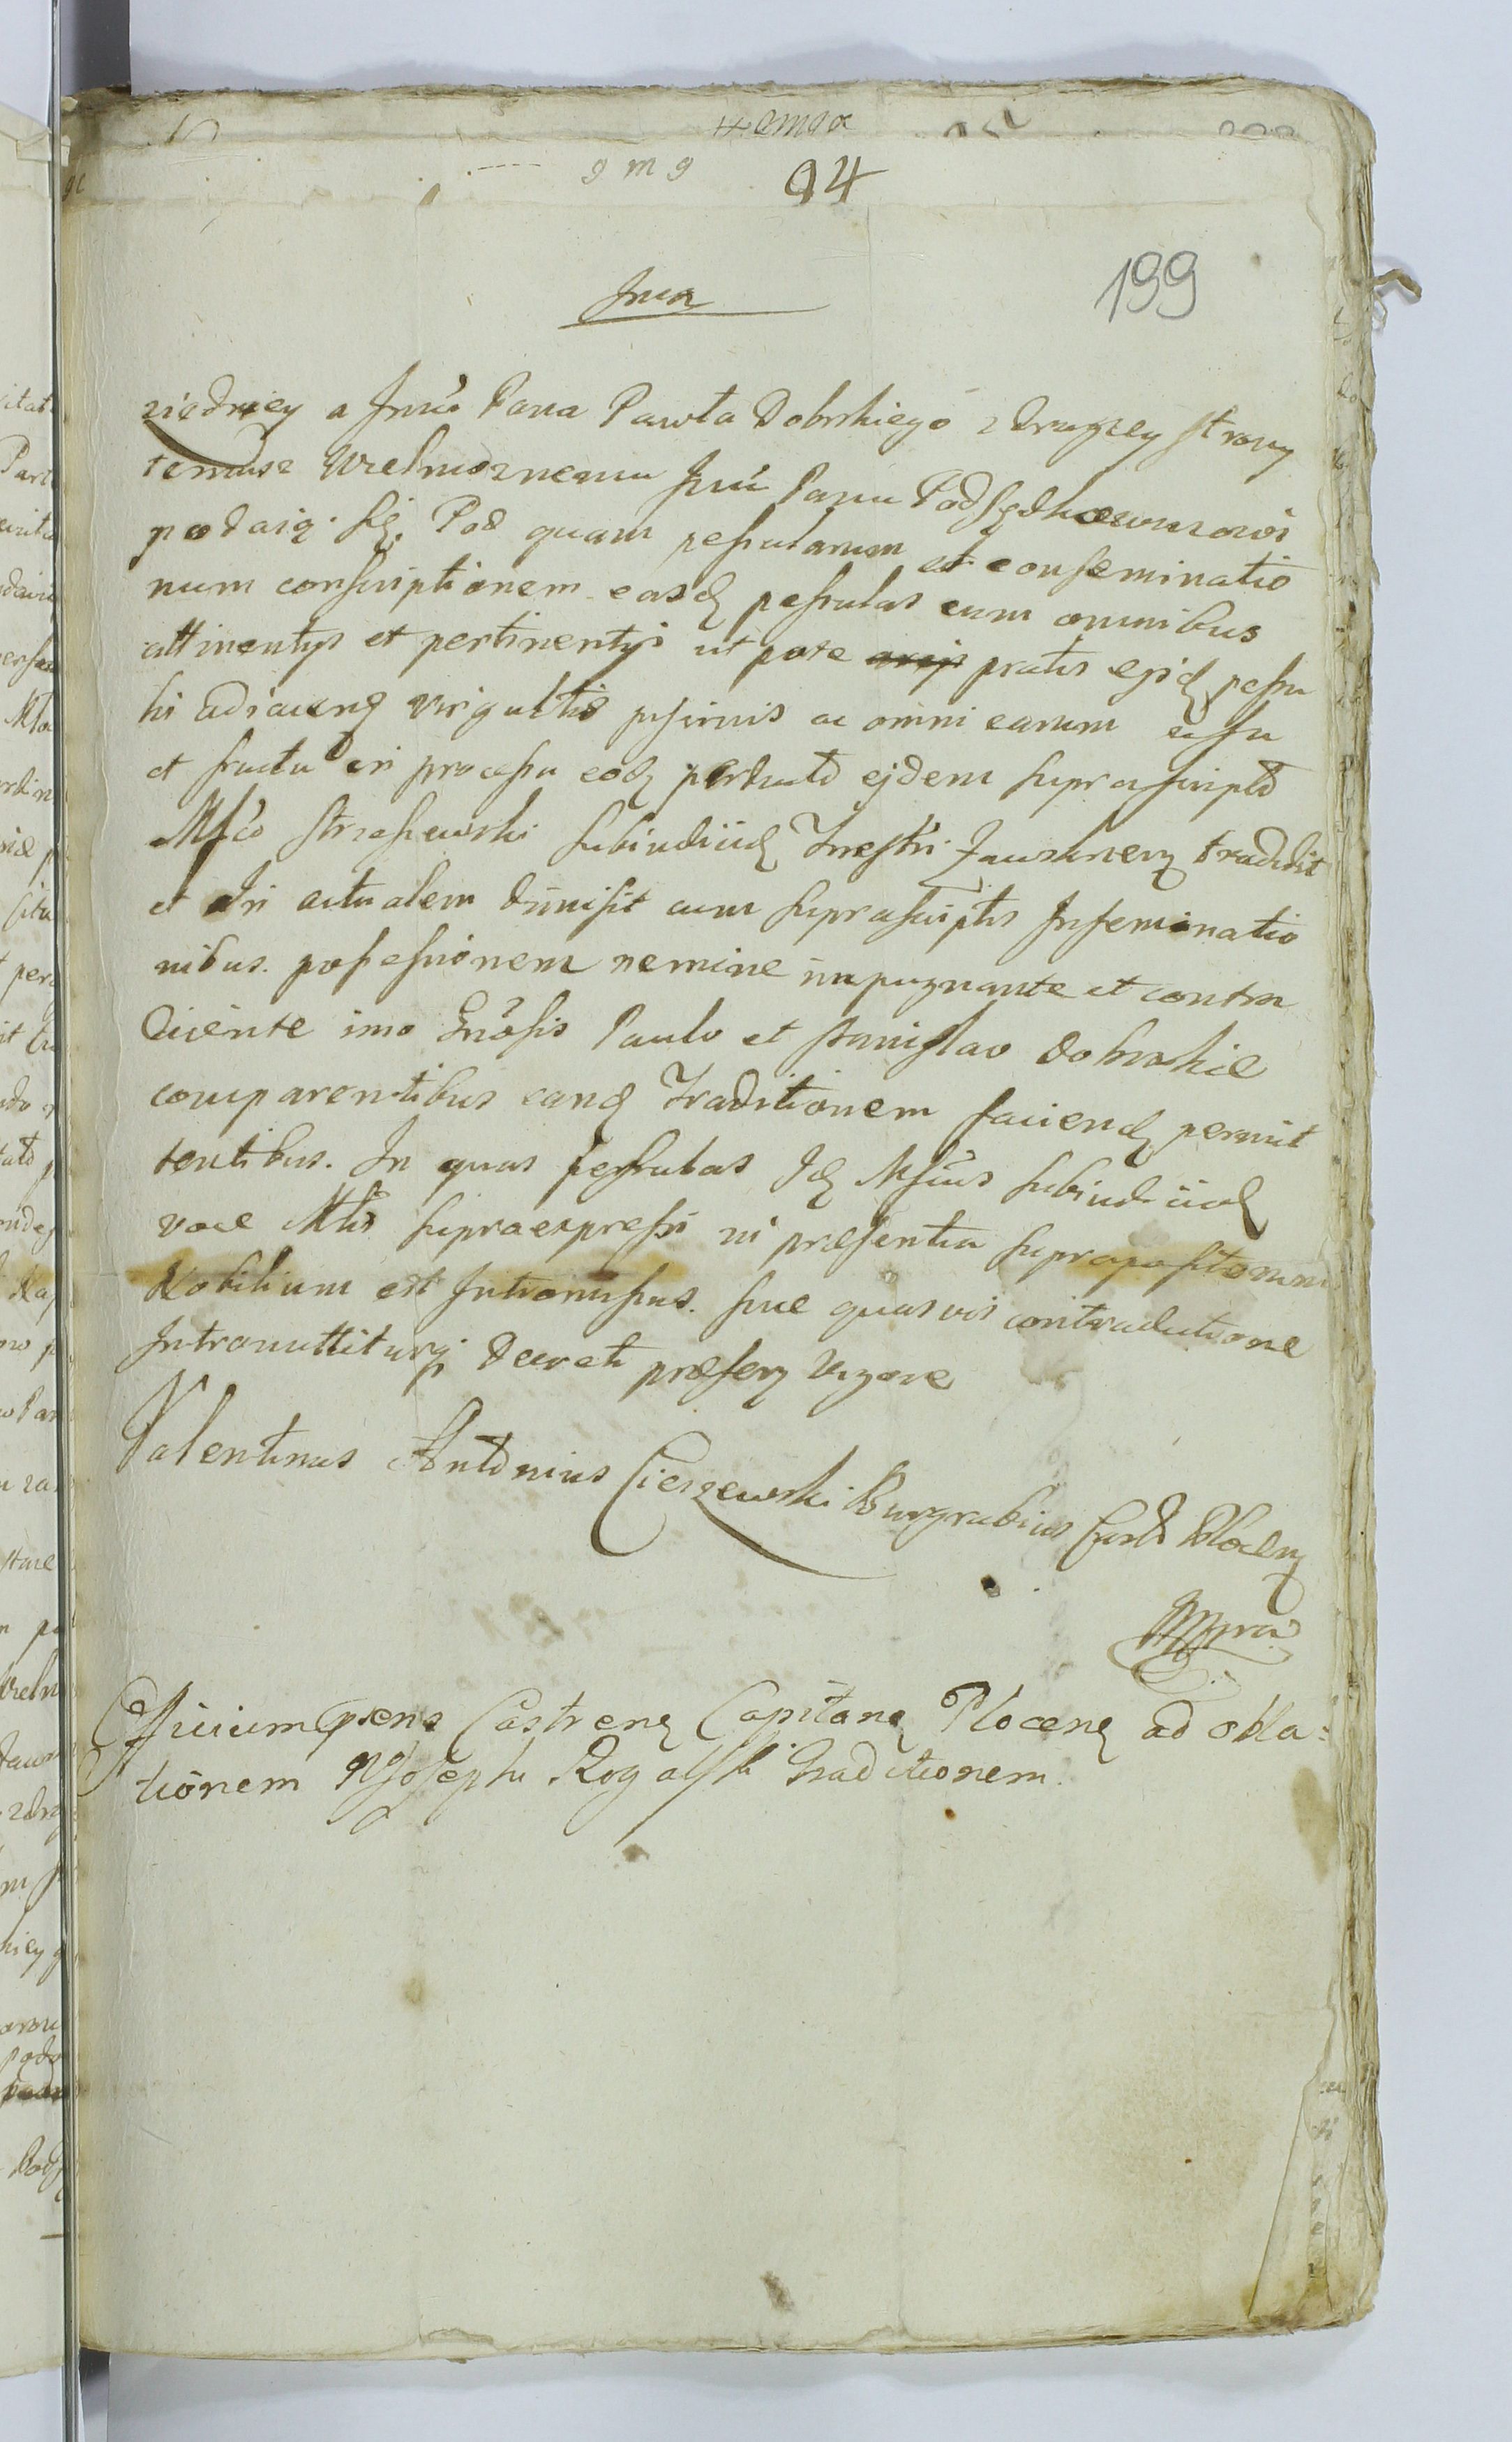 94
199
Jnca
ziedney a Jmći Pana Pawła Dobrskiego z drugiey strony
temusz Wielmoznemu Jmći Panu Podsędkowi
podaię się. Pod quam pessularum et conseminatio
num conscriptionem easdq pessulas cum omnibus
attinentys et pertinentys ut pote pratis ejsdq pessu
lis adiacenq virgultis piscinis ac omni earum usu
et fructu in processu eodq perducto ejdem suprascripto
Mfco Straszewski subiudici Terrestri Zawskrenq tradidit
et in actualem dimisit cum suprascriptis Inseminatio
nibus. possessionem nemine impugnante et contra
dicente imo Gnosis Paulo et Stanislao Dobrskie
comparentibus eandq Traditionem faciendq permit
tentibus. In quas pessulas Idq Mfcus subiudex
vove Mtis supraexpressi in præsentia suprapositorum
Nobilium est Intromissus. sine quavis contradictione
Intromittiturq Decreti præsenq vigore
Valentinus Antonius Cieszewski Burgrabius Castr Plocenq
Mpria
Officium præns Castrenq Capitanq Plocenq ad obla=
tionem N Josephi Rogalski Traditionem.